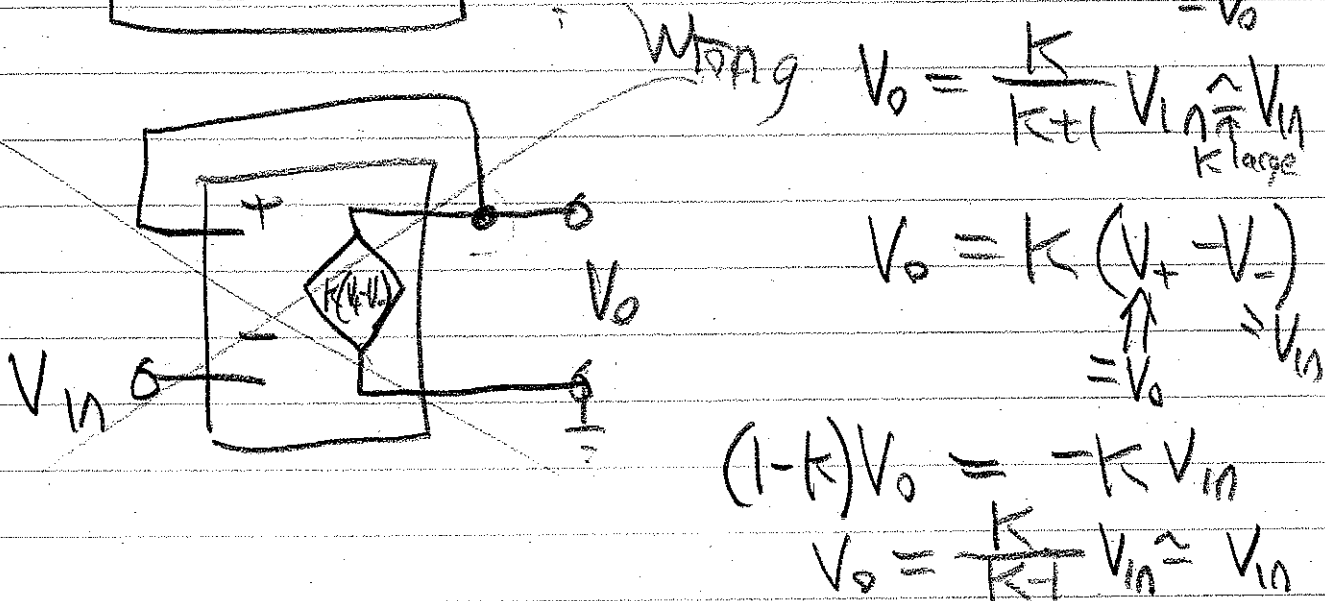 = V0
Wrong
V0 = K/(K+1) Vin ≅ Vin
↑
K large
+
K(V+-V-)
V0
-
Vin
V0 = K (V+ - V-)
⇑
= V0
= Vin
(1-K)V0 = -K Vin
V0 = K/(K-1) Vin ≅ Vin